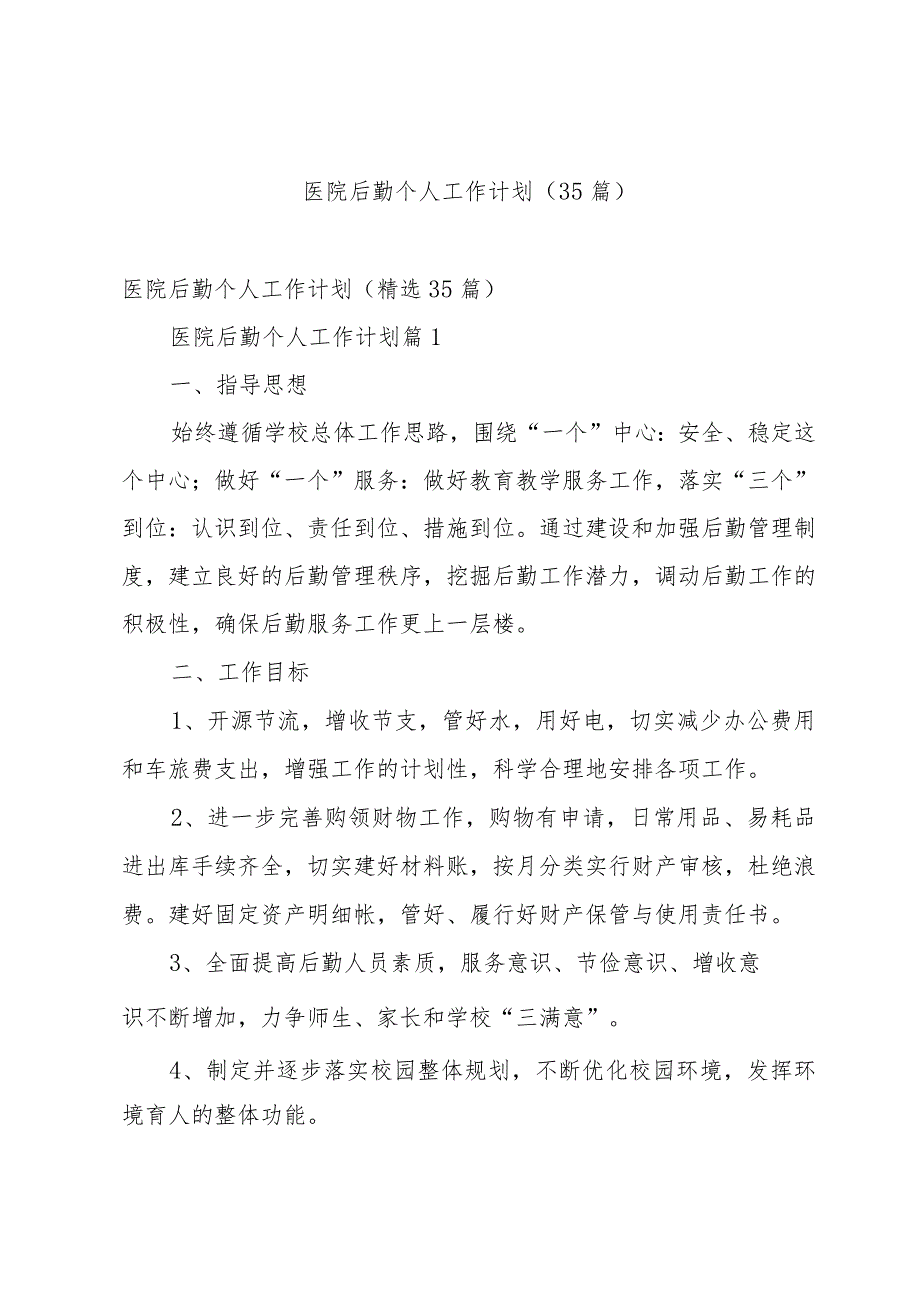 医院后勤个人工作计划（35 篇）
医院后勤个人工作计划（精选 35 篇）
医院后勤个人工作计划篇 1
一、指导思想
始终遵循学校总体工作思路，围绕“一个”中心：安全、稳定这
个中心；做好“一个”服务：做好教育教学服务工作，落实“三个”
到位：认识到位、责任到位、措施到位。通过建设和加强后勤管理制
度，建立良好的后勤管理秩序，挖掘后勤工作潜力，调动后勤工作的
积极性，确保后勤服务工作更上一层楼。
二、工作目标
1、开源节流，增收节支，管好水，用好电，切实减少办公费用
和车旅费支出，增强工作的计划性，科学合理地安排各项工作。
2、进一步完善购领财物工作，购物有申请，日常用品、易耗品
进出库手续齐全，切实建好材料账，按月分类实行财产审核，杜绝浪
费。建好固定资产明细帐，管好、履行好财产保管与使用责任书。
3、全面提高后勤人员素质，服务意识、节俭意识、增收意
识不断增加，力争师生、家长和学校“三满意”。
4、制定并逐步落实校园整体规划，不断优化校园环境，发挥环
境育人的整体功能。